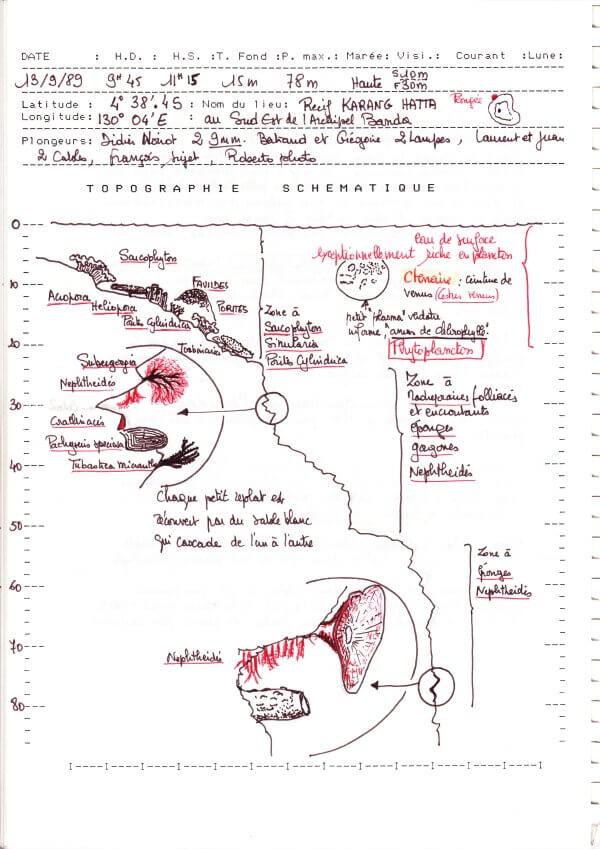 DATE : H.D. : H.S. :T. Fond :P. max.: Marée: Visi.: Courant :Lune:
13/9/89 9H45 11H15 15m 78m Haute S 10m F 30m
Latitude : 4° 38'.45 : Nom du lieu: Récif KARANG HATTA Plongée
Longitude: 130° 04'E : au Sud Est de l'Archipel Banda
Plongeurs: Didier Noirot 2 9mm. Bertrand et Grégoire 2 lampes, Laurent et Juan
2 Cables, François sujet, Roberto photo
TOPOGRAPHIE SCHEMATIQUE
0
10
20
30
40
50
60
70
80
Sarcophyton
Acropora
Heliopora
FAVIDES
PORITES
Porites Cylindrica
Turbinaria
Zone à
Sarcophyton
Sinularia
Porites Cylindrica
eau de surface
exceptionnellement riche en plancton
Cténaire : ceinture de
venus (cestus veneris)
petit "plasma" verdatre
informe, "amas de chlorophylle"
Phytoplancton
Subergorgia
Nephtheidés
Pachyseris speciosa
Tubastrea micrantha
Zone à
Madréporaires folliacés
et encroutants
éponges
gorgones
Nephtheidés
Chaque petit replat est
découvert par du sable blanc
qui cascade de l'un à l'autre
Zone à
éponges
Nephtheidés
Nephtheidés